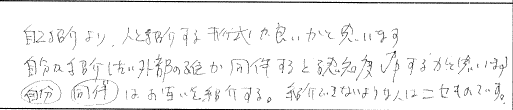 自己紹介より、人を紹介する形式が良いかと思います
自分を紹介 外部の誰か同伴すると認知度 するかと思います
自分 同伴 はお互いを紹介する。紹介できないような人はニセものです。